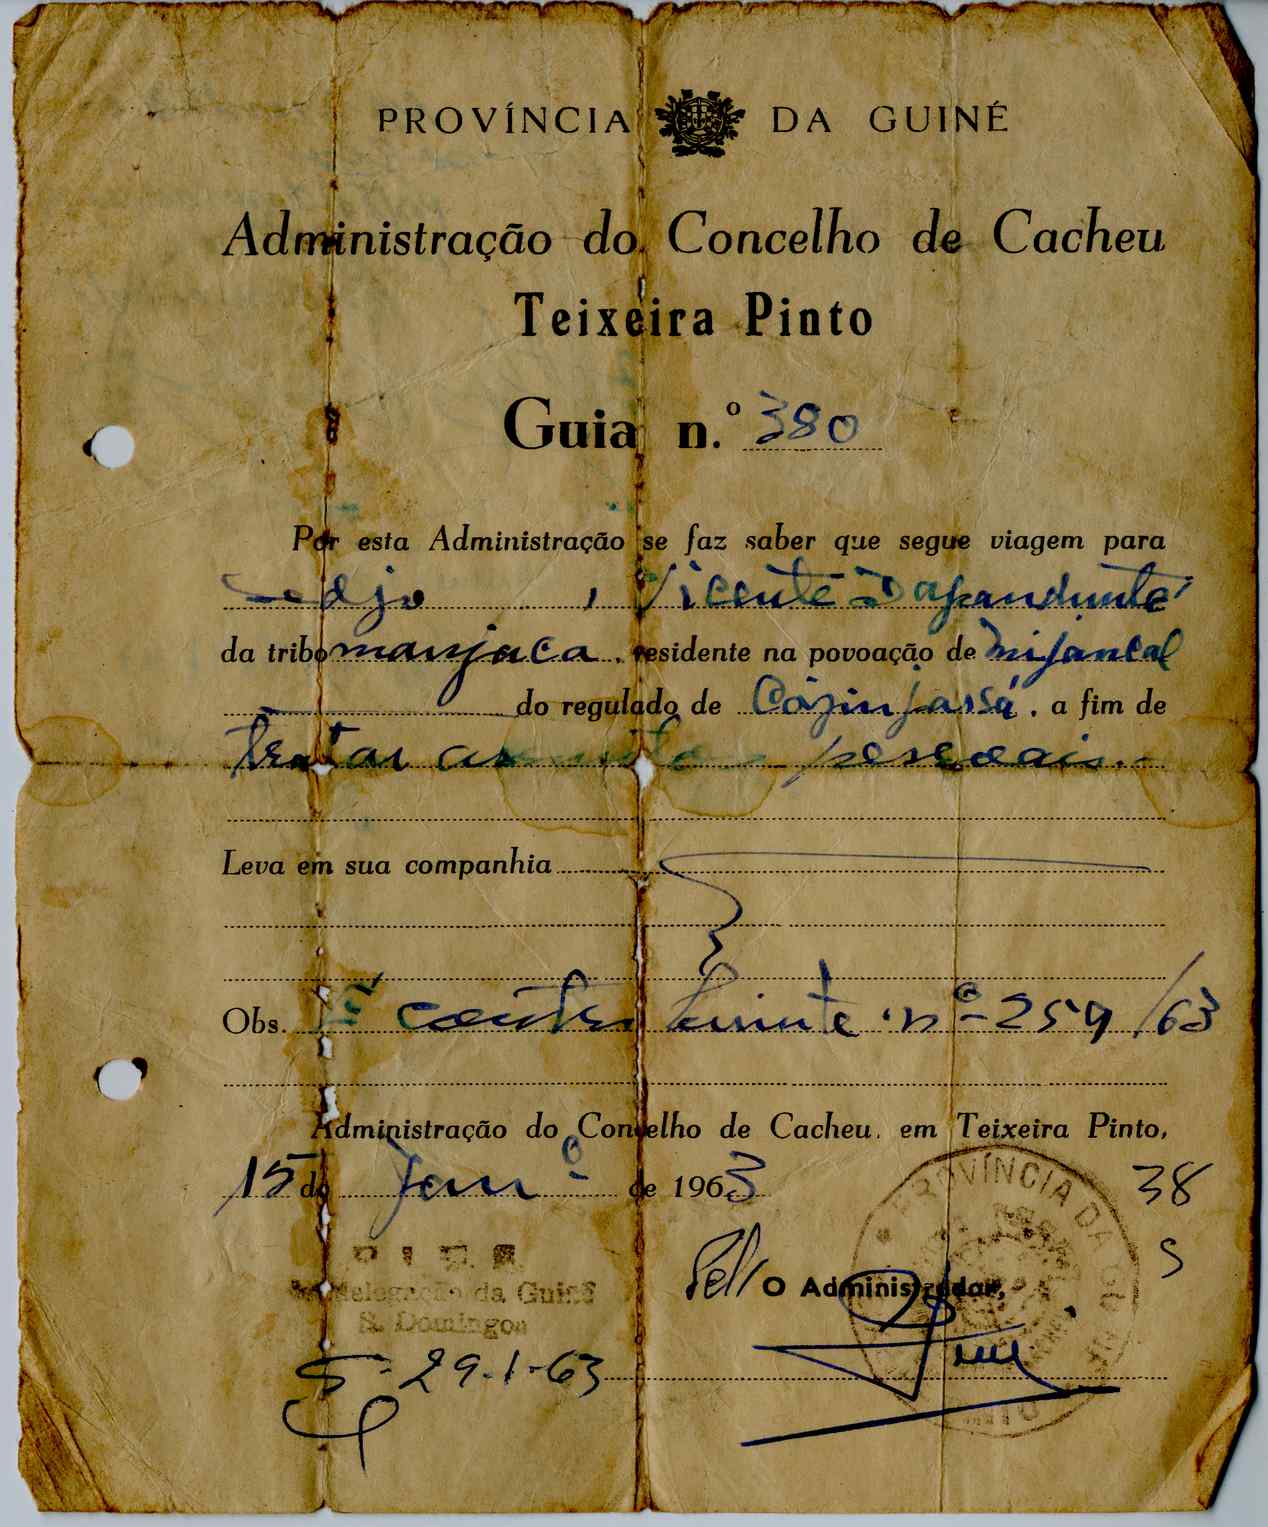 PROVÍNCIA DA GUINÉ
Administração do Concelho de Cacheu
Teixeira Pinto
Guia n.º 380
Por esta Administração se faz saber que segue viagem para
Vicente
da tribo manjaca, residente na povoação de
do regulado de , a fim de
tratar assuntos pessoais.-
Leva em sua companhia
Obs. É contribuinte nº 259/63
Administração do Concelho de Cacheu, em Teixeira Pinto,
15 de Janº de 1963
38
S
PROVÍNCIA DA GUINÉ
P I D E
Delegação da Guiné
S. Domingos
Pel' O Administrador,
S-29-1-63